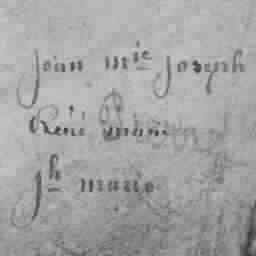 jean m^ie joseph
René mari
jh marie